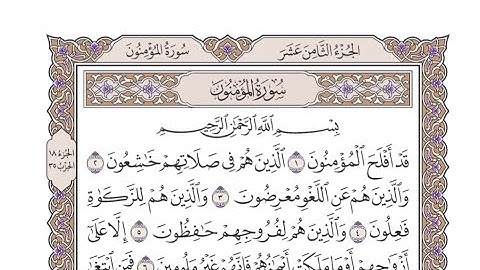 الجُزْءُ الثَّامِنَ عَشَرَ
سُورَةُ المُؤْمِنُونَ
سُورَةُ المُؤْمِنُونَ
بِسْمِ اللَّهِ الرَّحْمَٰنِ الرَّحِيمِ
قَدْ أَفْلَحَ الْمُؤْمِنُونَ ١ الَّذِينَ هُمْ فِي صَلَاتِهِمْ خَٰشِعُونَ ٢
وَالَّذِينَ هُمْ عَنِ اللَّغْوِ مُعْرِضُونَ ٣ وَالَّذِينَ هُمْ لِلزَّكَوٰةِ
فَٰعِلُونَ ٤ وَالَّذِينَ هُمْ لِفُرُوجِهِمْ حَٰفِظُونَ ٥ إِلَّا عَلَىٰ
أَزْوَٰجِهِمْ أَوْ مَا مَلَكَتْ أَيْمَٰنُهُمْ فَإِنَّهُمْ غَيْرُ مَلُومِينَ ٦ فَمَنِ ابْتَغَىٰ
الجزء ١٨
الحزب ٣٥